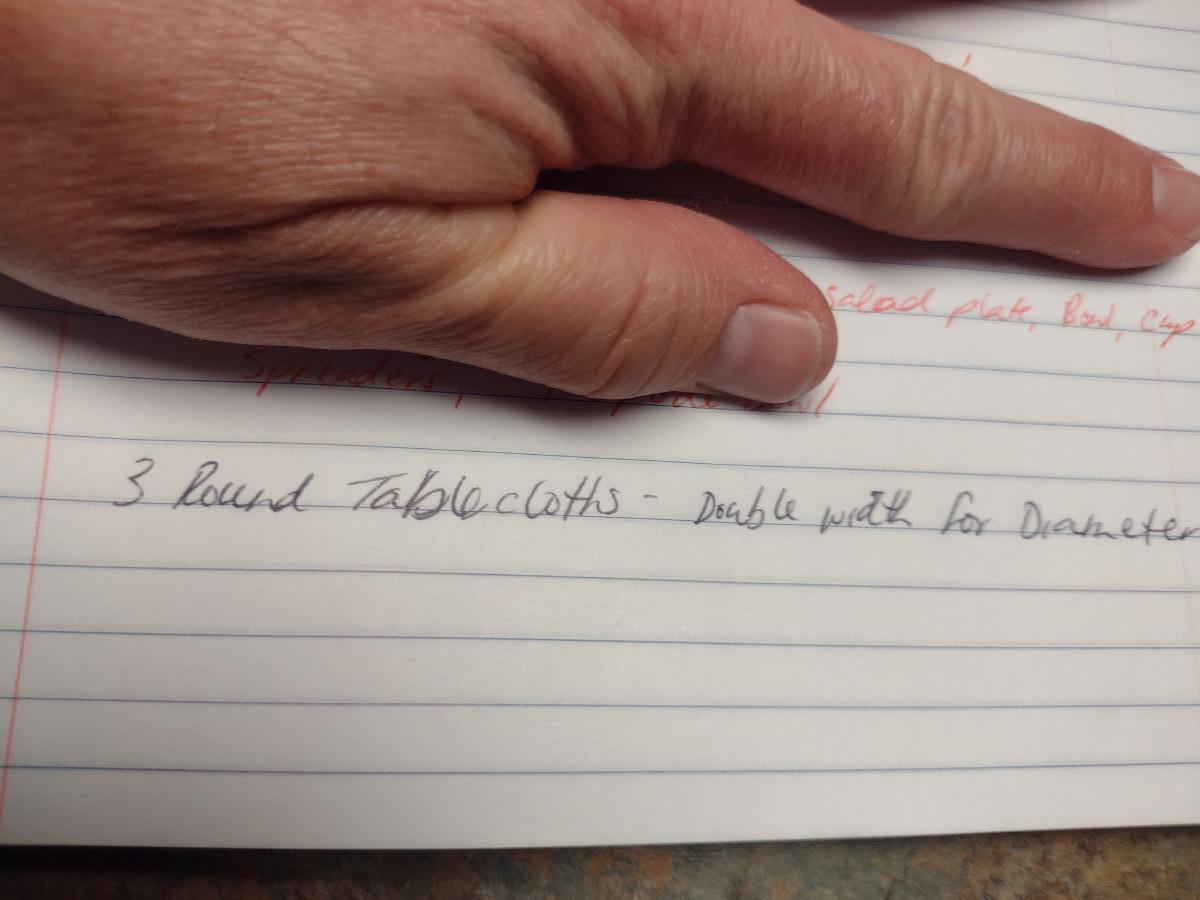 Salad plate, Bowl, Cup
Spreaders, Bowl
3 Round Tablecloths - Double width for Diameter